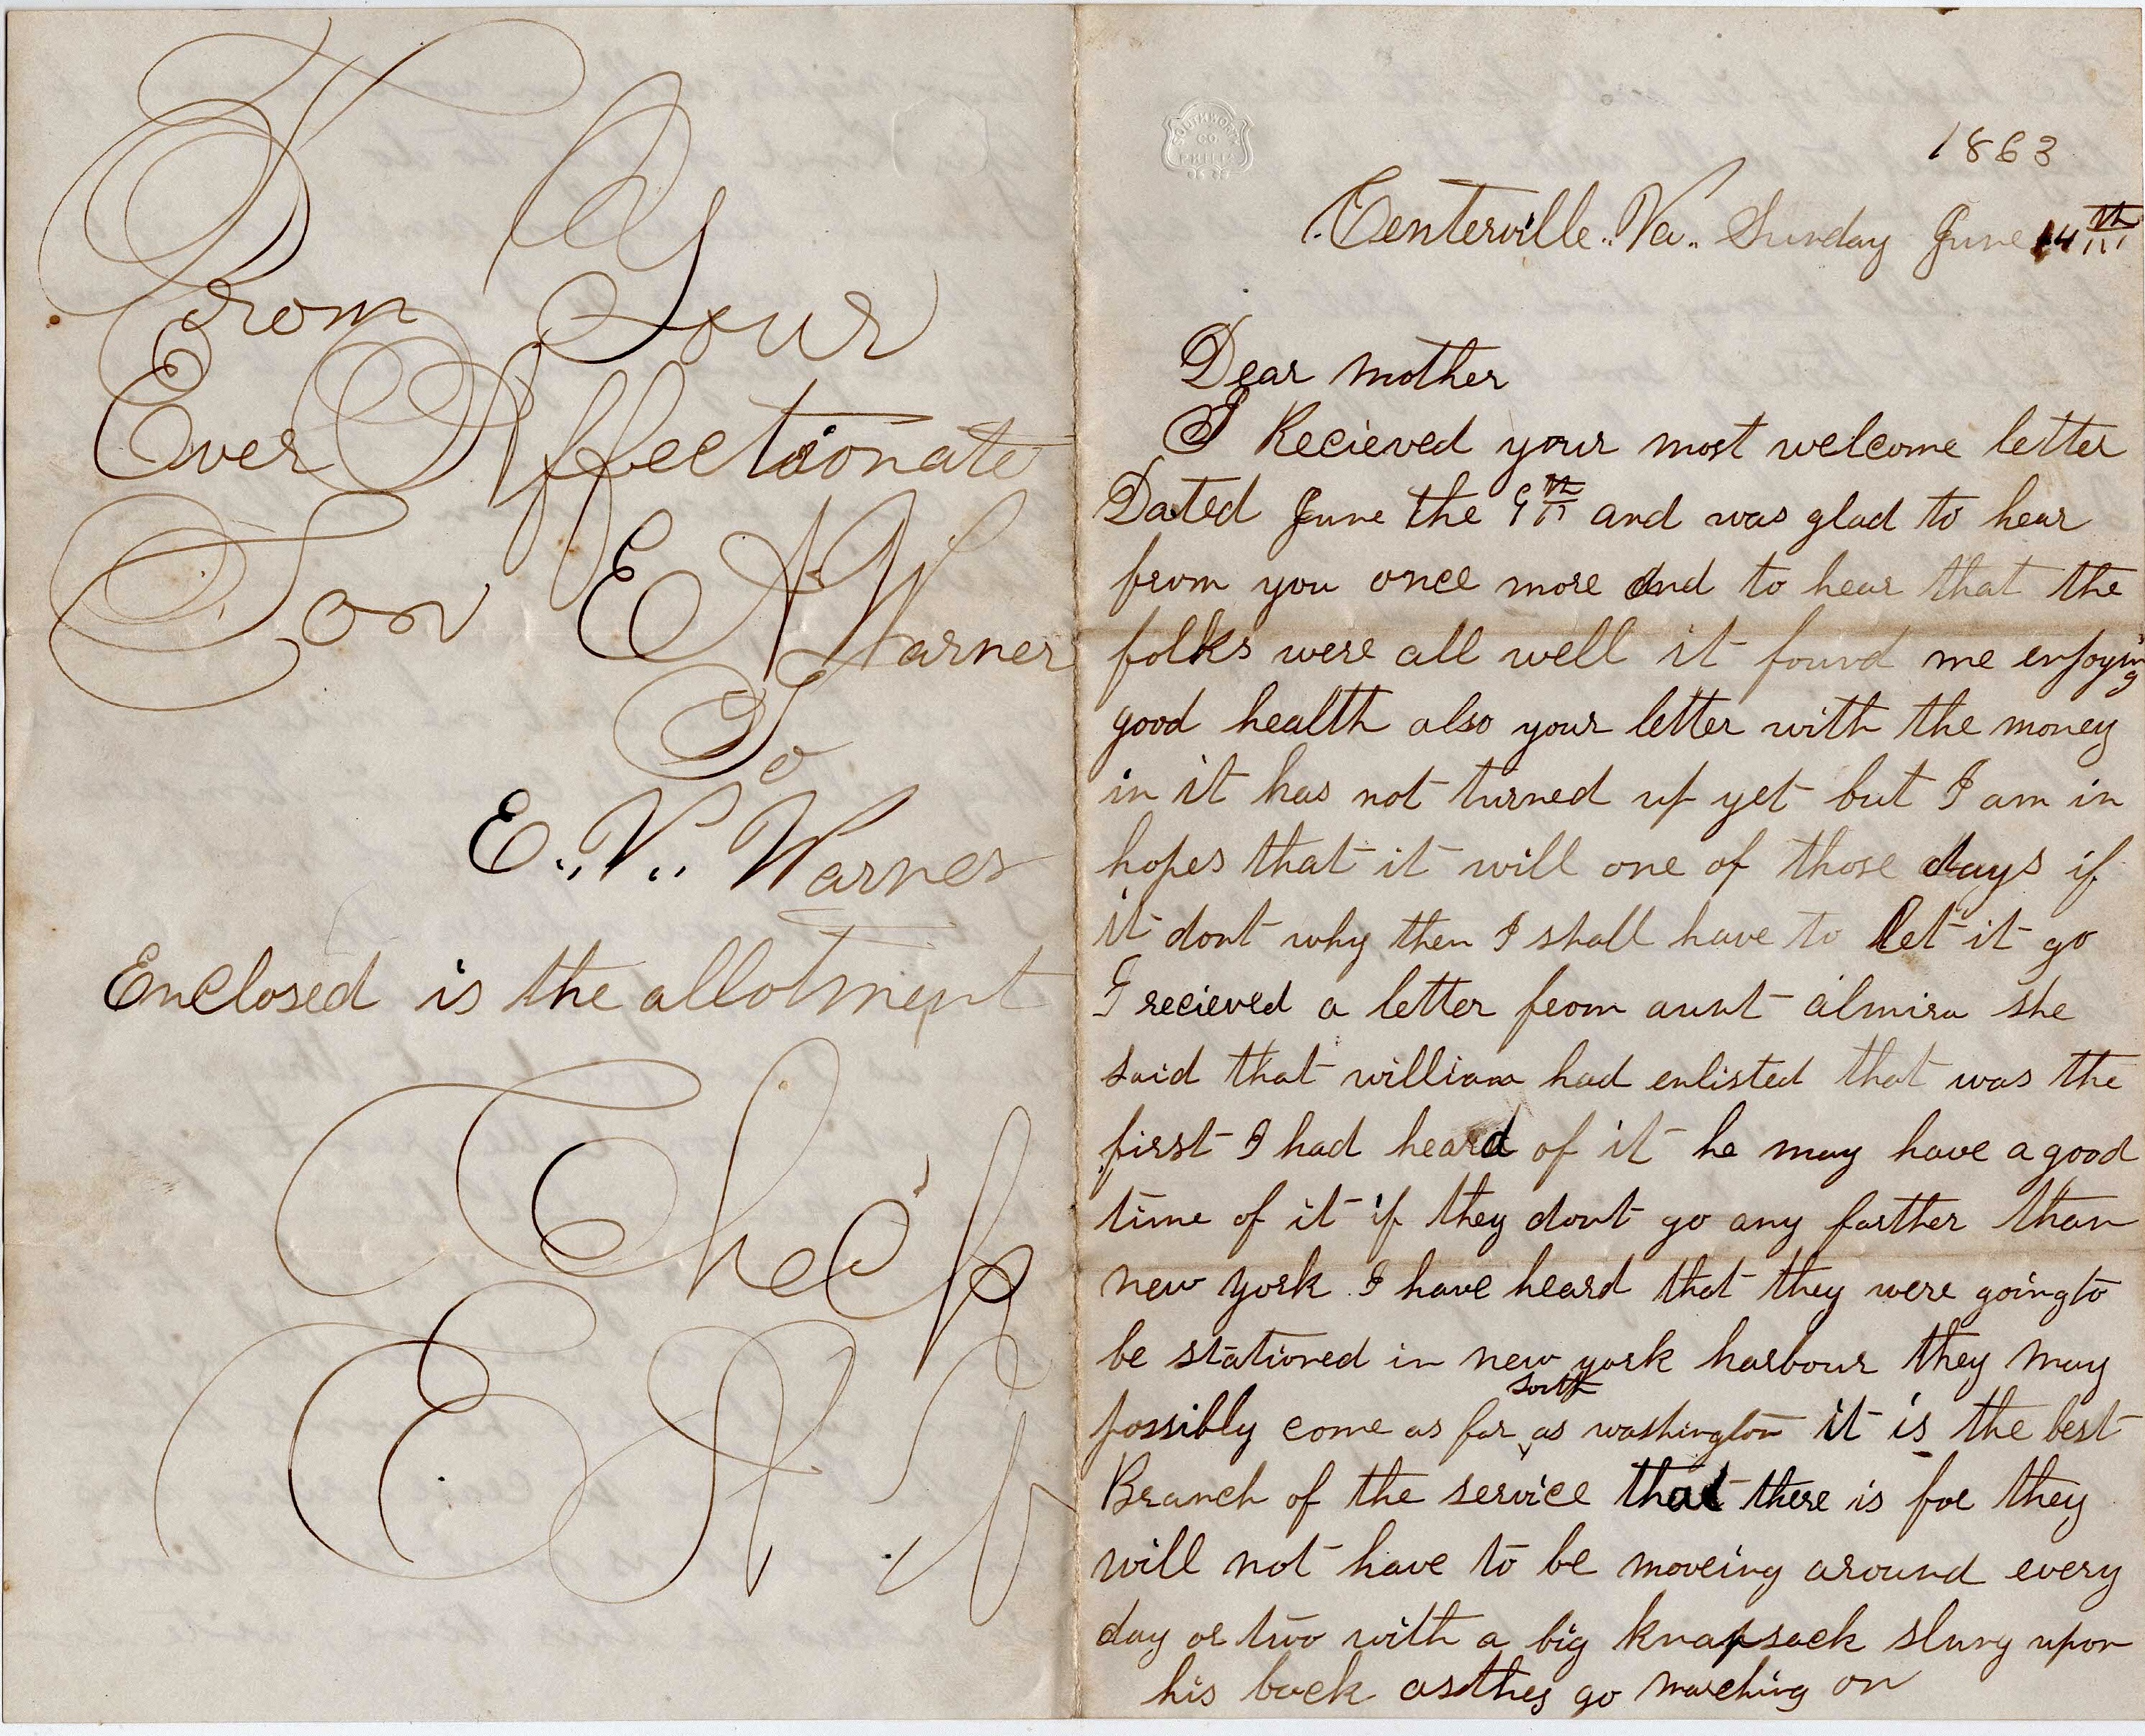 From Your
Ever Affectionate
Son E A Warner
To
E.. V.. Warner
Enclosed is the allotment
Check
E A W
SOUTHWORTH
CO
MILLS
1863
Centerville.. Va.. Sunday June 14th
Dear mother
I Recieved your most welcome letter
Dated June the 9th and was glad to hear
from you once more and to hear that the
folks were all well it found me enjoying
good health also your letter with the money
in it has not turned up yet but I am in
hopes that it will one of those days if
it dont why then I shall have to let it go
I recieved a letter from aunt almira she
said that william had enlisted that was the
first I had heard of it he may have a good
time of it if they dont go any farther than
new york I have heard that they were going to
be stationed in new york harbour they may
possibly come as far south as washington it is the best
Branch of the service that there is for they
will not have to be moveing around every
day or two with a big knapsack slung upon
his back as they go marching on